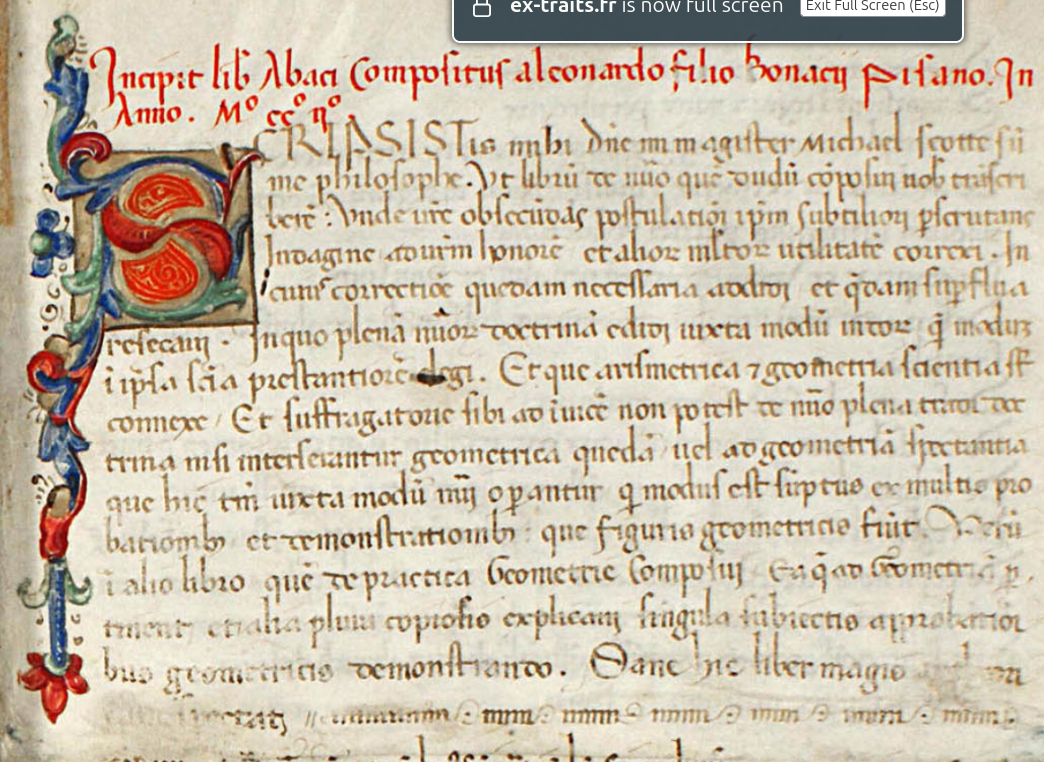 ex-traits.fr is now full screen Exit Full Screen (Esc)
Incipit lib̄ Abaci Compositus a leonardo filio Bonacij Pisano. In
Anno. Mº ccº ijº
SCRIPSISTis mihi dn̄e mi magister Michael scotte sūm
me philosophe. Vt librū de nūo quē dudū cōposui uob̄ trāscri
berē: Vnde ur̄e obsecūdās postulatiōi ip̄m subtiliori ꝑscrutans
Indagine ad ur̄m honorē et alior̄ ml̄tor̄ utilitatē correxi. In
cuius correctiōe quedam necessaria addidi et q̄dam suꝑflua
resecaui. In quo plenā nūor̄ doctrinā edidi iuxta modū indor̄ q̄ modū
ī ip̄sa sciā prestantiorē elegi. Et que arismetrica ⁊ geometria scientia st̄
connexe / Et suffragatorie sibi ad īuicē non potest de nūo plena tradi doc
trina nisi interserantur geometrica quedā / uel ad geometriā spectantia
que hic tm̄ iuxta modū nūi oꝑantur q̄ modus est sūptus ex multis pro
bationib; et demonstrationib; que figuris geometricis fiūt. Verū
ī alio libro quē de practica Geometrie Composui Ea q̄ ad Geometriā ꝑ
tinent et alia plura copiosius explicaui singula subiectis approbatiōi
bus geometricis demonstrando. Sane hic liber magis